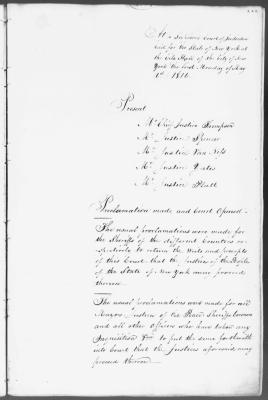 At a Supreme Court of Judicature
held for the State of New York at
the City Hall of the City of New
York the first Monday of May
1816.
Present
Mr Chief Justice Thompson
Mr Justice Spencer
Mr Justice Van Ness
Mr Justice Yates
Mr Justice Platt
Proclamation made and Court Opened
The usual proclamations were made for
the Sheriffs of the different Counties re-
spectively to return the Writs and precepts
of this Court that the Justices of the People
of the State of New York may proceed
thereon
The usual proclamations was made for all
Mayors Justices of the Peace
and all other Officers who have taken any
Inquisition &c to put the same forthwith
into Court that the Justices aforesaid may
proceed thereon